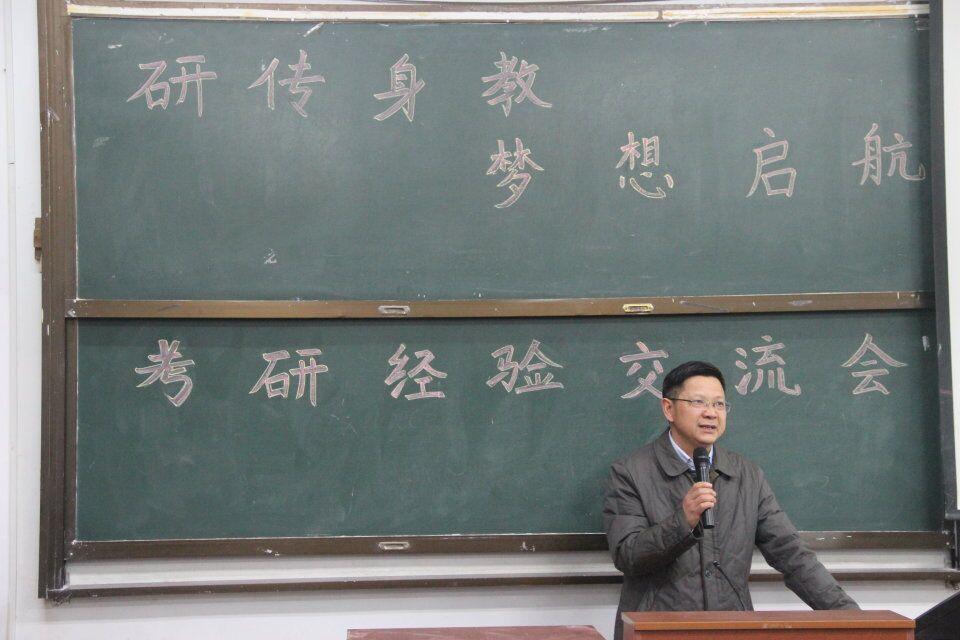 研传身教
梦想启航
考研经验交流会